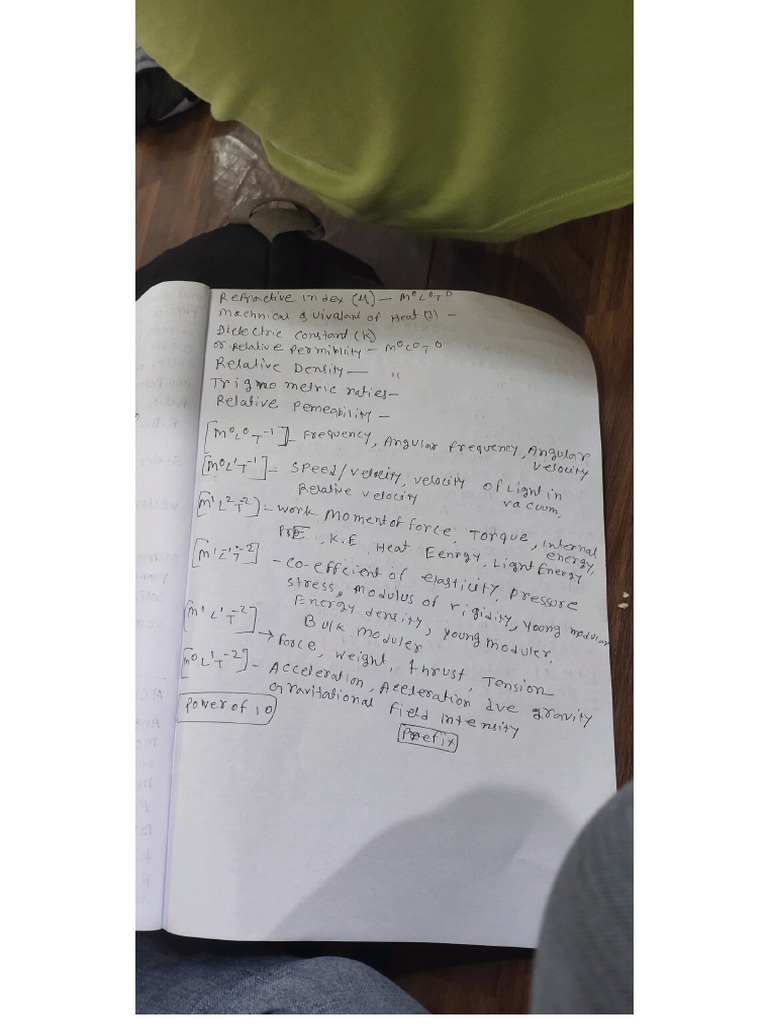 Refractive index (μ) — M⁰L⁰T⁰
Machnical Equivalant of Heat (J) —
Dielectric constant (K)
or Relative Permiblity — M⁰L⁰T⁰
Relative Density — "
Trigno metric raties —
Relative Pemeability —
[M⁰L⁰T⁻¹] — Frequency, Angular frequency, Angular velocity
[M⁰L¹T⁻¹] — Speed/velocity, velocity of Light in vacuum,
Relative velocity
[M¹L²T⁻²] — work Moment of force, Torque, internal energy,
P.E, K.E, Heat Eenrgy, Light Energy
[M¹L⁻¹T⁻²] — co-efficient of elasticity, pressure
stress, modulus of rigidity, young modular
Energy density, young moduler,
Bulk moduler
[M¹L¹T⁻²] → force, weight, thrust, Tension
[M⁰L¹T⁻²] — Acceleration, Aceleration due gravity
Gravitational field intensity
Power of 10
Prefix